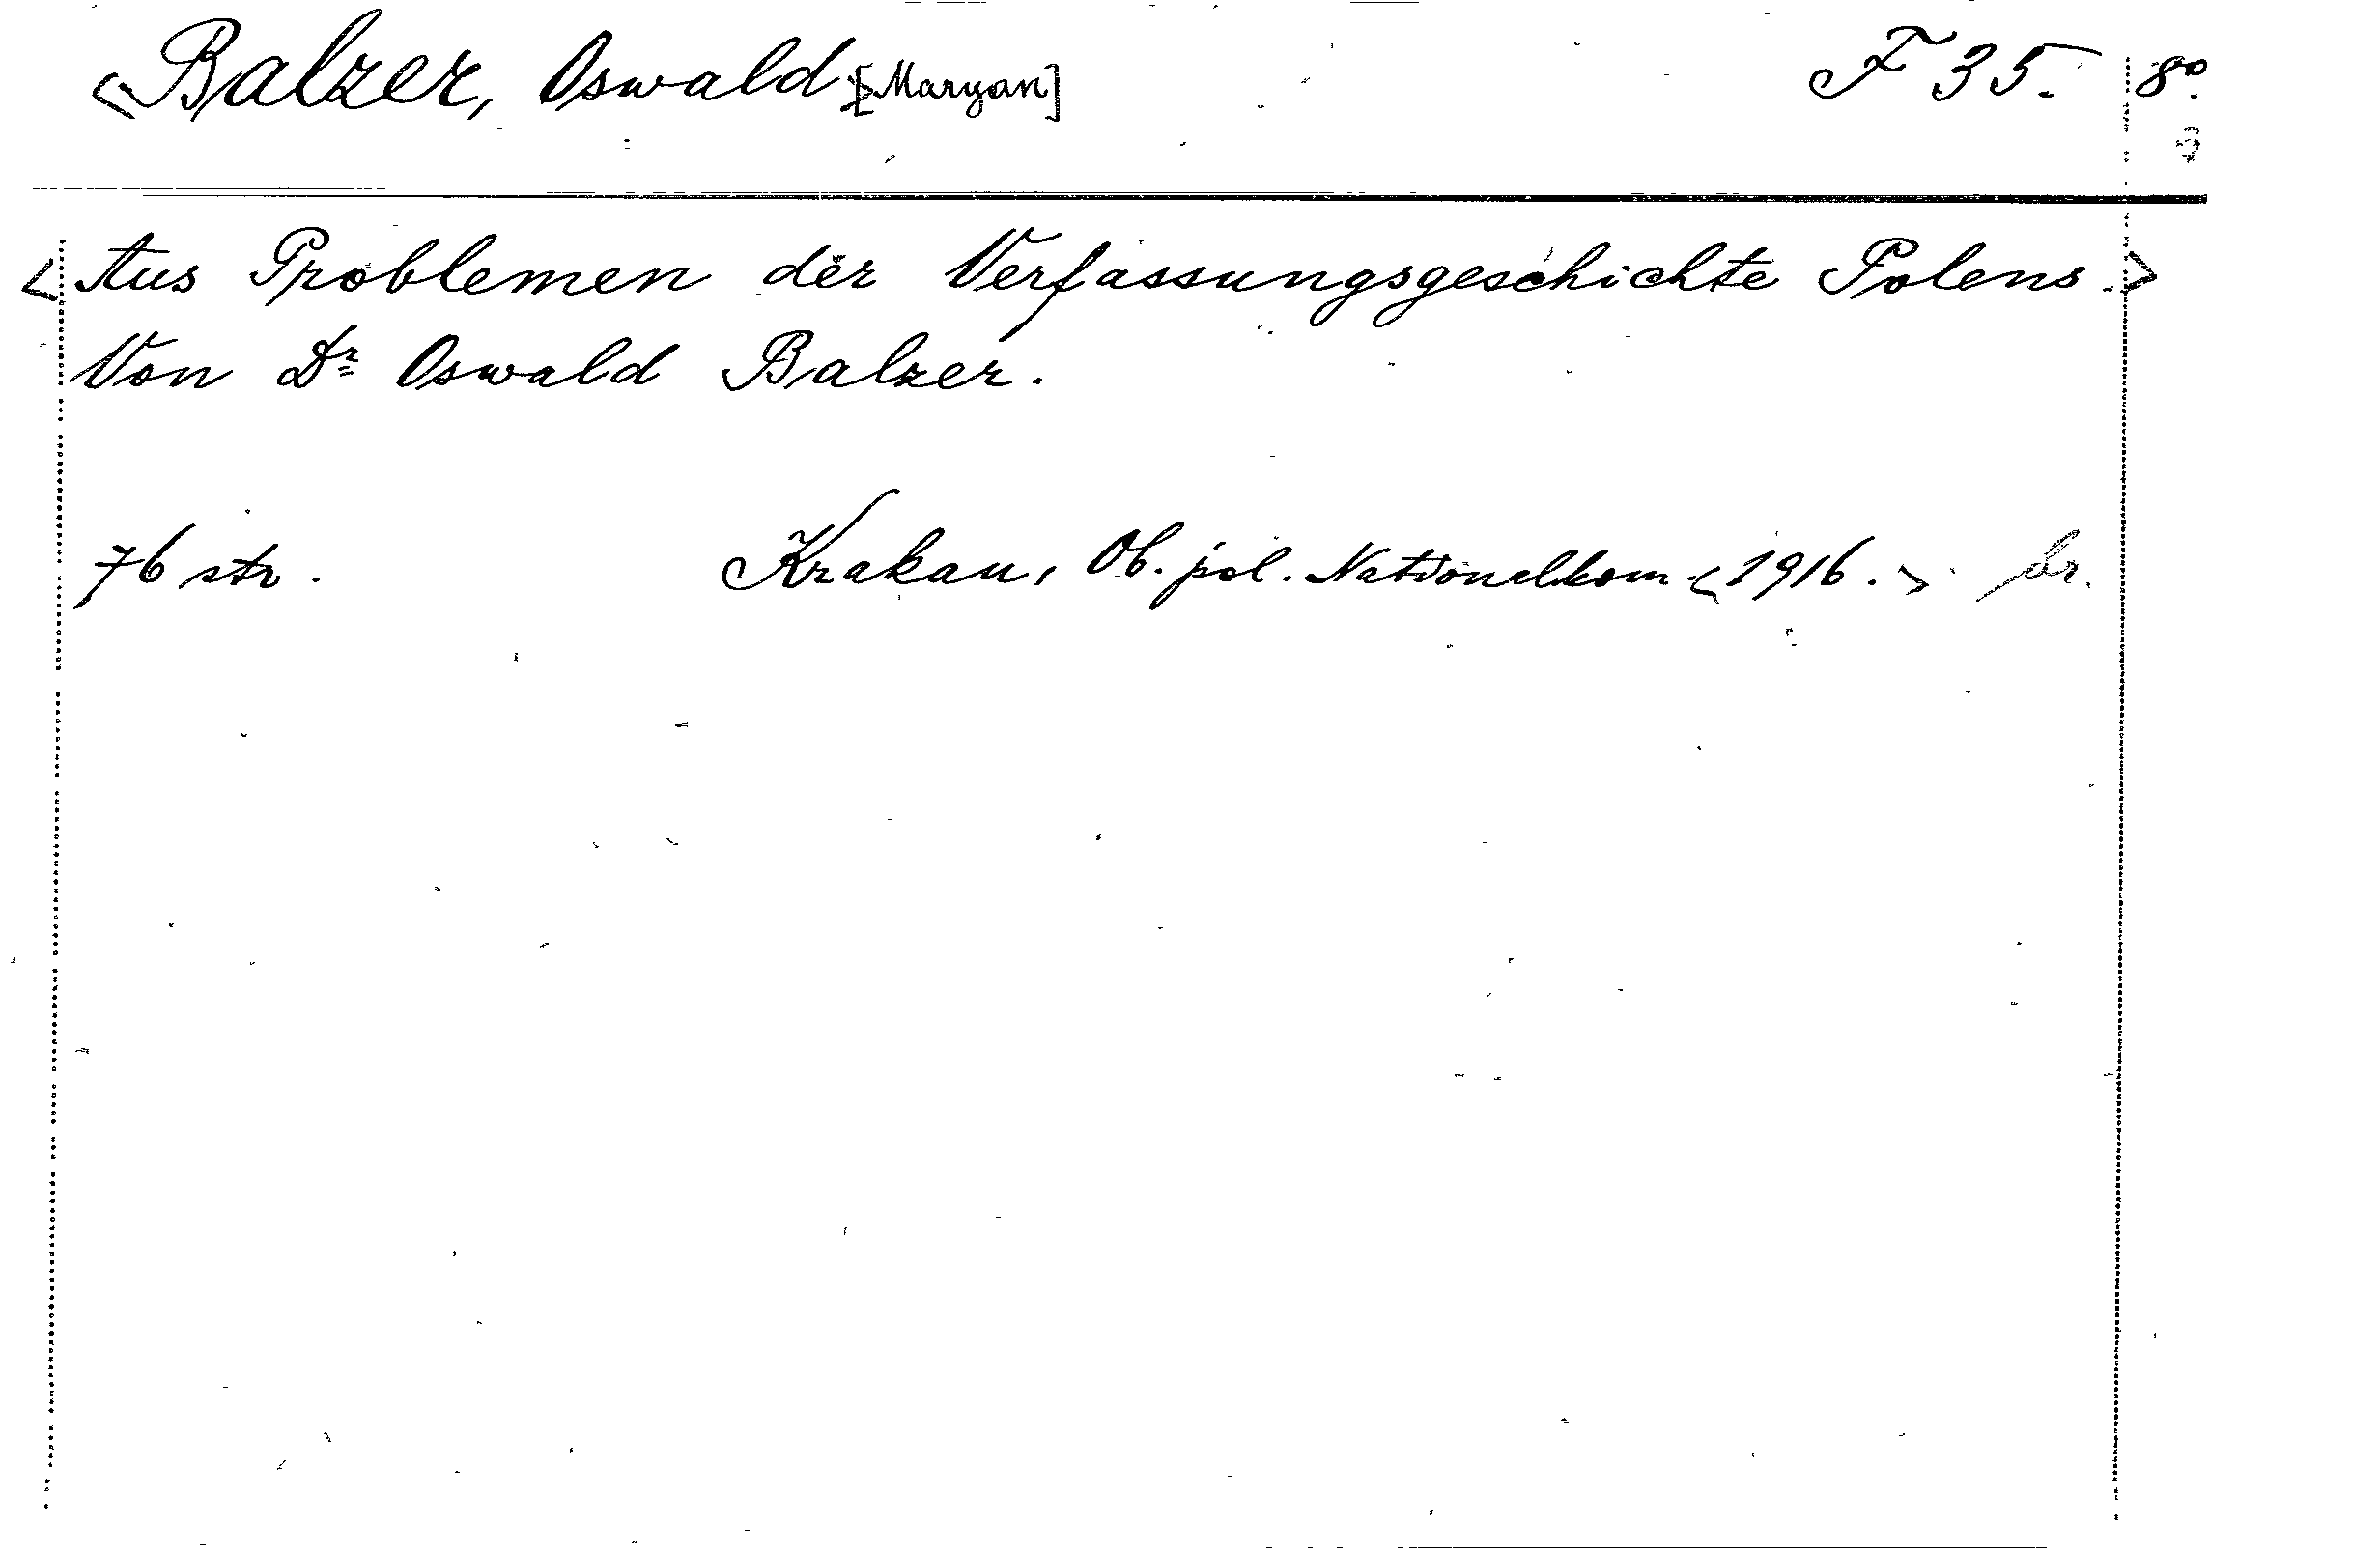 <Balzer, Oswald> [Maryan] F 35. 8o.
<Aus Problemen der Verfassungsgeschichte Polens.>
Von Dr Oswald Balzer.
76 str. Krakau, Ob. pol. Nationalkom. <1916.> br.